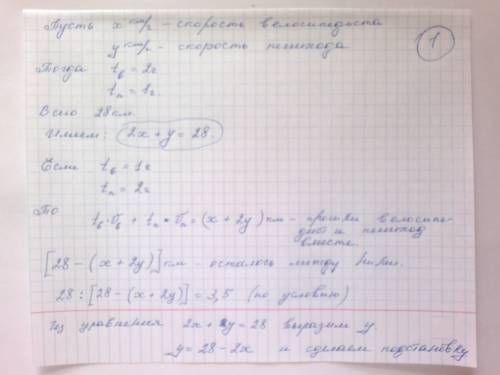 Пусть x км/г – скорость велосипедиста
y км/г – скорость пешехода
1
Тогда tв = 2г
tп = 1г.
Всего 28 км.
Имеем: 2x + y = 28.
Если tв = 1г
tп = 2г
То
tв·Vв + tп·Vп = (x + 2y) км – прошли велосипе-
дист и пешеход
вместе.
[28 – (x + 2y)] км – осталось между ними.
28 : [28 – (x + 2y)] = 3,5 (по условию)
Из уравнения 2x + y = 28 выразим y.
y = 28 – 2x и сделаем подстановку